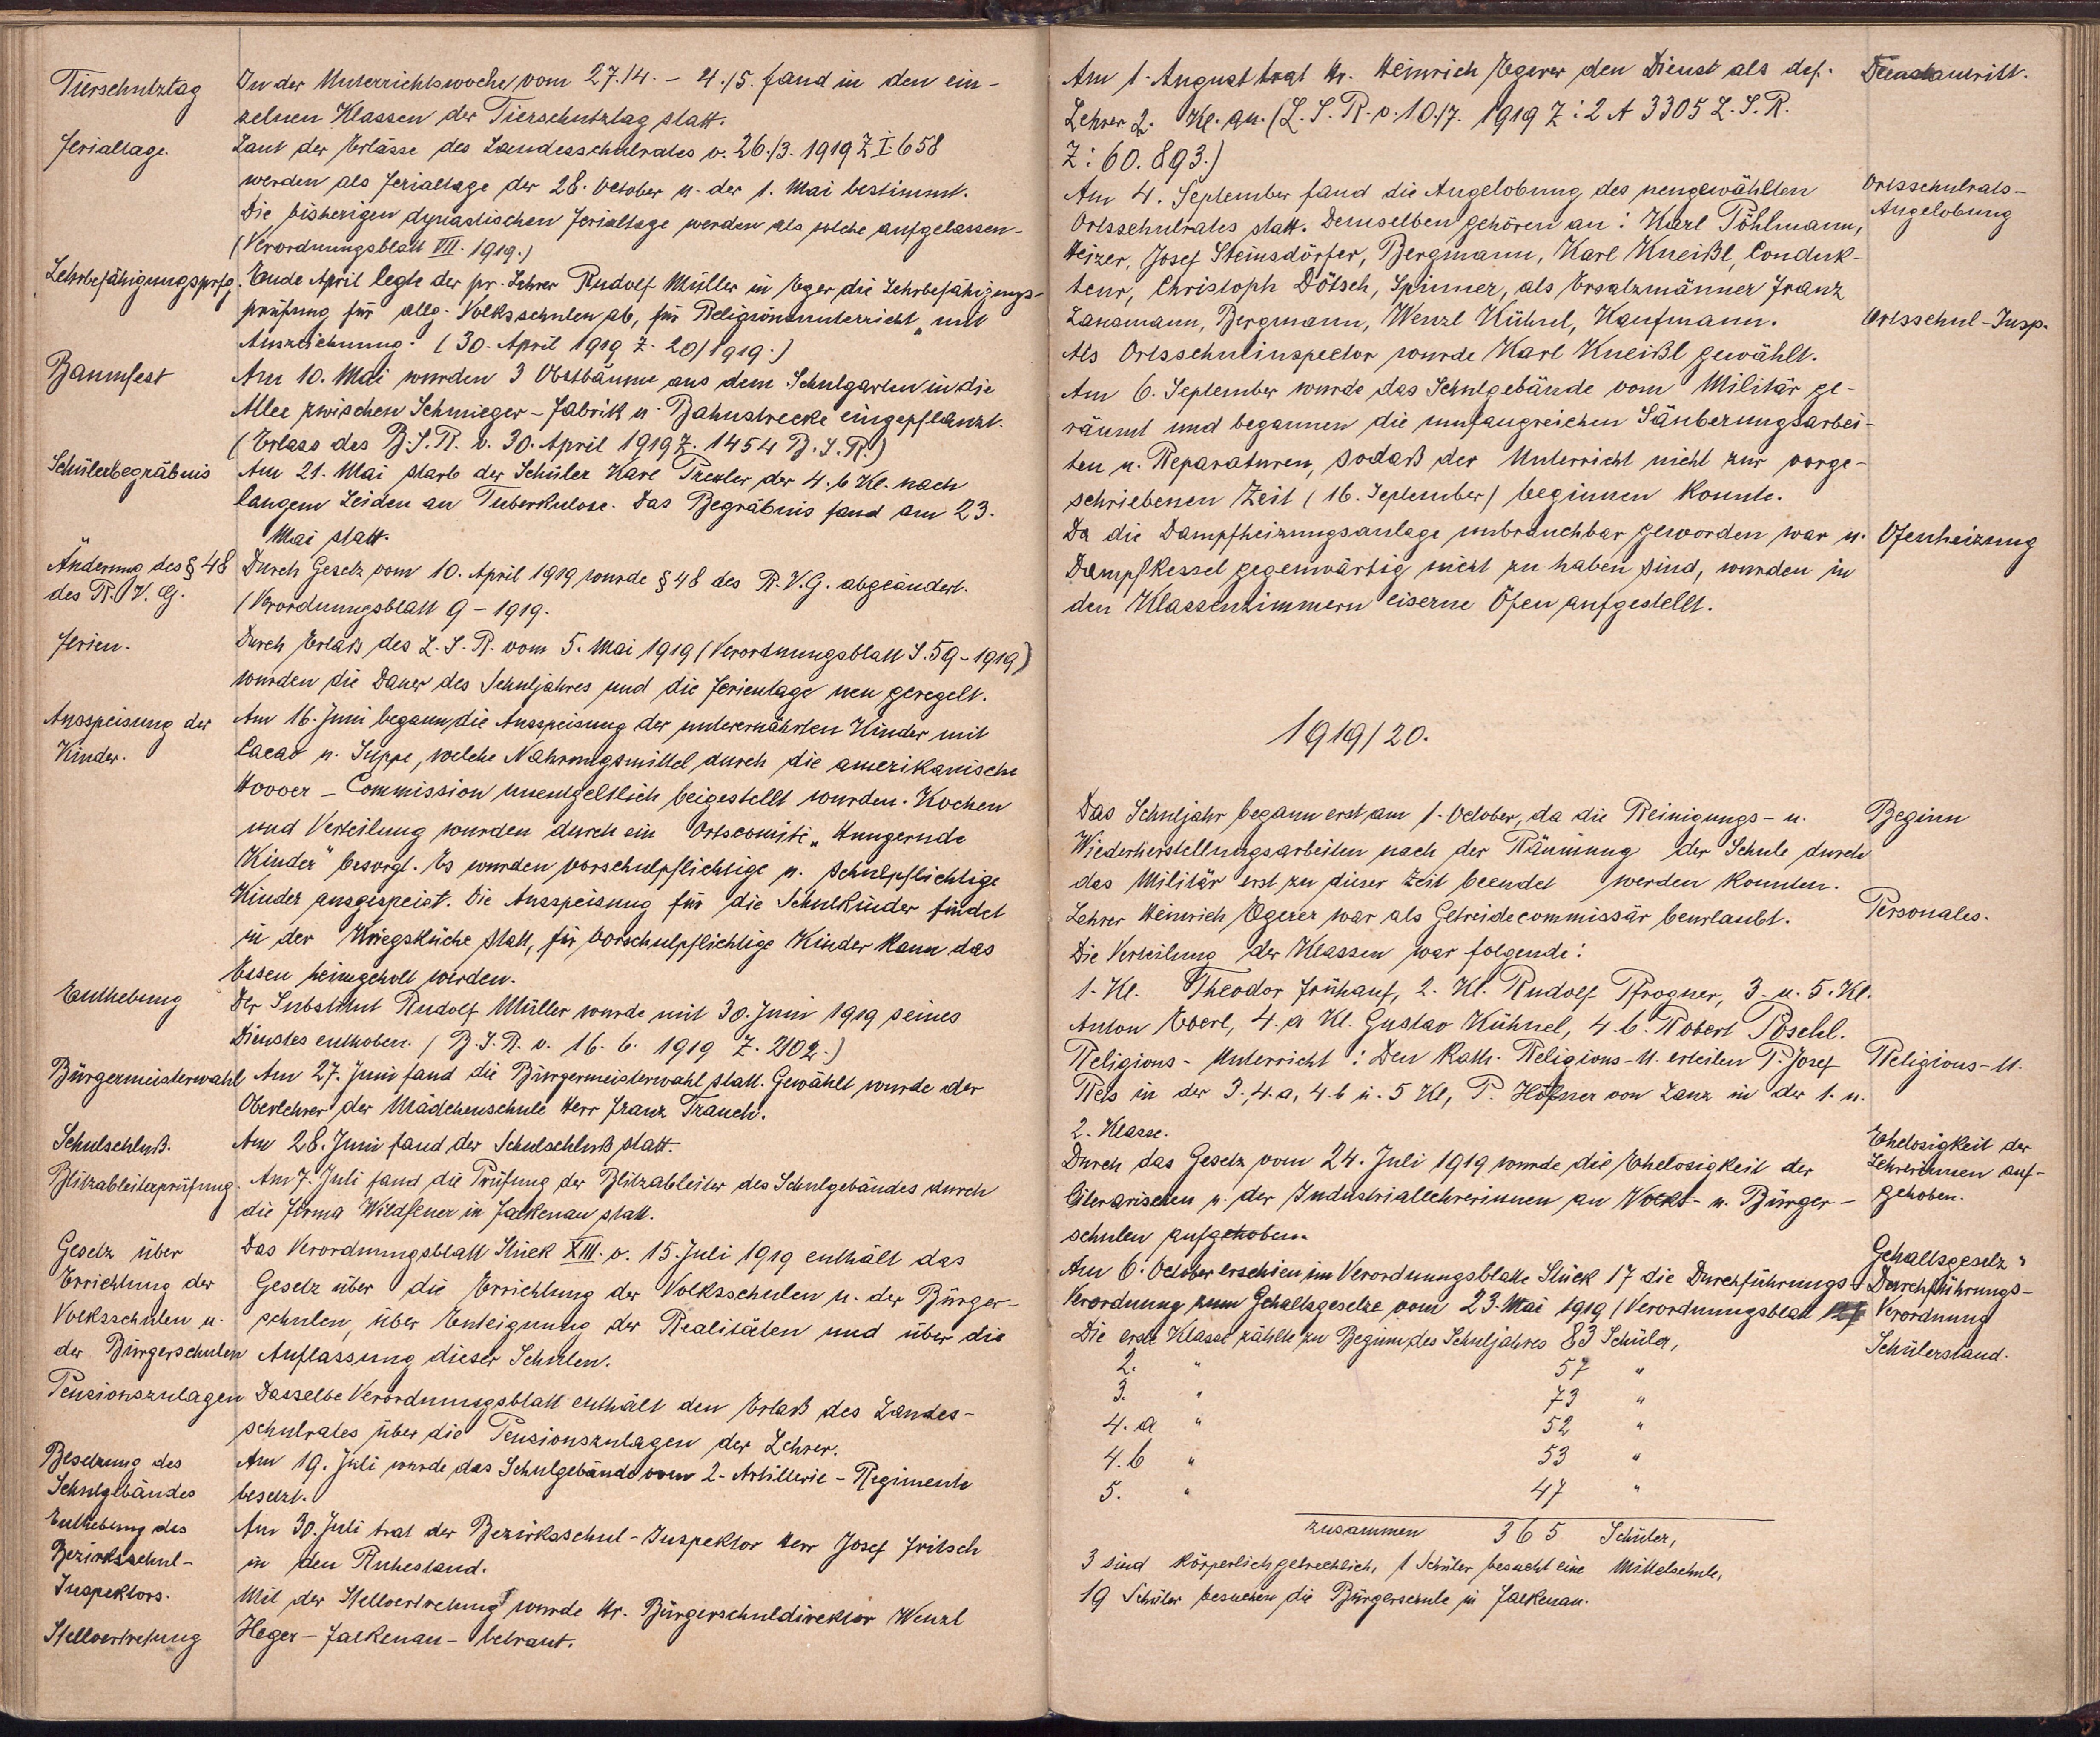 Tierschutztag
In der Unterrichtswoche vom 27./4. – 4./5. fand in den ein-
zelnen Klassen der Tierschutztag statt.
Ferialtage.
Laut der Erlässe des Landesschulrates v. 26./3. 1919 Z. I. 658
werden als Ferialtage der 28. October u. der 1. Mai bestimmt.
Die bisherigen dynastischen Ferialtage werden als solche aufgelassen.
(Verordnungsblatt VIII. 1919.)
Lehrbefähigungsprfg.
Ende April legte der pr. Lehrer Rudolf Müller in Eger die Lehrbefähigungs-
prüfung für allg. Volksschulen ab, für Religionsunterricht „mit
Auszeichnung. (30. April 1919 Z. 20/1919.)
Baumfest
Am 10. Mai wurden 3 Obstbäume aus dem Schulgarten in die
Allee zwischen Schmieger-Fabrik u. Bahnstrecke eingepflanzt.
(Erlass des B.S.R. v. 30. April 1919 Z. 1454 B.S.R.)
Schülerbegräbnis
Am 21. Mai starb der Schüler Karl Trexler der 4. b Kl. nach
langem Leiden an Tuberkulose. Das Begräbnis fand am 23.
Mai statt.
Änderung des § 48
des R.V.G.
Durch Gesetz vom 10. April 1919 wurde § 48 des R.V.G. abgeändert.
(Verordnungsblatt 9 – 1919.
Ferien.
Durch Erlaß des L.S.R. vom 5. Mai 1919 (Verordnungsblatt S. 59 – 1919)
wurden die Dauer des Schuljahres und die Ferientage neu geregelt.
Ausspeisung der
Kinder.
Am 16. Juni begann die Ausspeisung der unterernährten Kinder mit
Cacao u. Suppe, welche Nahrungsmittel durch die amerikanische
Hoover – Commission unentgeltlich beigestellt wurden. Kochen
und Verteilung wurden durch ein Ortscomité „Hungernde
Kinder" besorgt. Es wurden vorschulpflichtige u. schulpflichtige
Kinder ausgespeist. Die Ausspeisung für die Schulkinder findet
in der Kriegsküche statt, für vorschulpflichtige Kinder kann das
Essen heimgeholt werden.
Enthebung
Der Substitut Rudolf Müller wurde mit 30. Juni 1919 seines
Dienstes enthoben. (B.S.R. v. 16. 6. 1919 Z. 2102.)
Bürgermeisterwahl
Am 27. Juni fand die Bürgermeisterwahl statt. Gewählt wurde der
Oberlehrer der Mädchenschule Herr Franz Trauch.
Schulschluß.
Am 28. Juni fand der Schulschluß statt.
Blitzableiterprüfung.
Am 7. Juli fand die Prüfung der Blitzableiter des Schulgebäudes durch
die Firma Wildfeuer in Falkenau statt.
Gesetz über
Errichtung der
Volksschulen u.
der Bürgerschulen
Das Verordnungsblatt Stück XIII. v. 15. Juli 1919 enthält das
Gesetz über die Errichtung der Volksschulen u. der Bürger-
schulen, über Enteignung der Realitäten und über die
Auflassung dieser Schulen.
Pensionszulagen
Dasselbe Verordnungsblatt enthält den Erlaß des Landes-
schulrates über die Pensionszulagen der Lehrer.
Besetzung des
Schulgebäudes
Am 19. Juli wurde das Schulgebäude vom 2. Artillerie – Regimente
besetzt.
Enthebung des
Bezirksschul-
Inspektors.
Am 30. Juli trat der Bezirksschul-Inspektor Herr Josef Fritsch
in den Ruhestand.
Stellvertretung
Mit der Stellvertretung wurde Hr. Bürgerschuldirektor Wenzl
Heger – Falkenau – betraut.
Am 1. August trat Hr. Heinrich Egerer den Dienst als def.
Lehrer 2. Kl. an. (L.S.R. v. 10./7. 1919 Z: 2 A 3305 L.S.R.
Z: 60.893.)
Dienstantritt.
Am 4. September fand die Angelobung des neugewählten
Ortsschulrates statt. Demselben gehören an: Karl Pöhlmann,
Heizer, Josef Steinsdörfer, Bergmann, Karl Kneißl, Conduk-
teur, Christoph Dötsch, Spinner, als Ersatzmänner Franz
Lansmann, Bergmann, Wenzl Kühnl, Kaufmann.
Ortsschulrats-
Angelobung
Als Ortsschulinspector wurde Karl Kneißl gewählt.
Ortsschul-Insp.
Am 6. September wurde das Schulgebäude vom Militär ge-
räumt und begannen die umfangreichen Säuberungsarbei-
ten u. Reparaturen, sodaß der Unterricht nicht zur vorge-
schriebenen Zeit (16. September) beginnen konnte.
Da die Dampfheizungsanlage unbrauchbar geworden war u.
Dampfkessel gegenwärtig nicht zu haben sind, wurden in
den Klassenzimmern eiserne Öfen aufgestellt.
Ofenheizung
1919/20.
Das Schuljahr begann erst am 1. October, da die Reinigungs- u.
Wiederherstellungsarbeiten nach der Räumung der Schule durch
das Militär erst zu dieser Zeit beendet werden konnten.
Beginn
Lehrer Heinrich Egerer war als Getreidecommissär beurlaubt.
Personales.
Die Verteilung der Klassen war folgende:
1. Kl. Theodor Frühauf, 2. Kl. Rudolf Pfrogner, 3. u. 5. Kl.
Anton Eberl, 4. a Kl. Gustav Kühnel, 4. b. Robert Pöschl.
Religions-Unterricht: Den kath. Religions-U. erteilen P. Josef
Rels in der 3., 4. a, 4. b u. 5 Kl, P. Höfner von Lanz in der 1. u.
2. Klasse.
Religions-U.
Durch das Gesetz vom 24. Juli 1919 wurde die Ehelosigkeit der
literarischen u. der Industriallehrerinnen an Volks- u. Bürger-
schulen aufgehoben.
Ehelosigkeit der
Lehrerinnen auf-
gehoben.
Am 6. October erschien im Verordnungsblatte Stück 17 die Durchführungs-
Verordnung zum Gehaltsgesetze vom 23. Mai 1919 (Verordnungsblatt
Gehaltsgesetz
Durchführungs-
Verordnung
Die erste Klasse zählte zu Beginn des Schuljahres 83 Schüler,
Schülerstand.
2. " 57 "
3. " 73 "
4. a " 52 "
4. b " 53 "
5. " 47 "
zusammen 365 Schüler,
3 sind körperlich gebrechlich, 1 Schüler besucht eine Mittelschule,
19 Schüler besuchen die Bürgerschule in Falkenau.